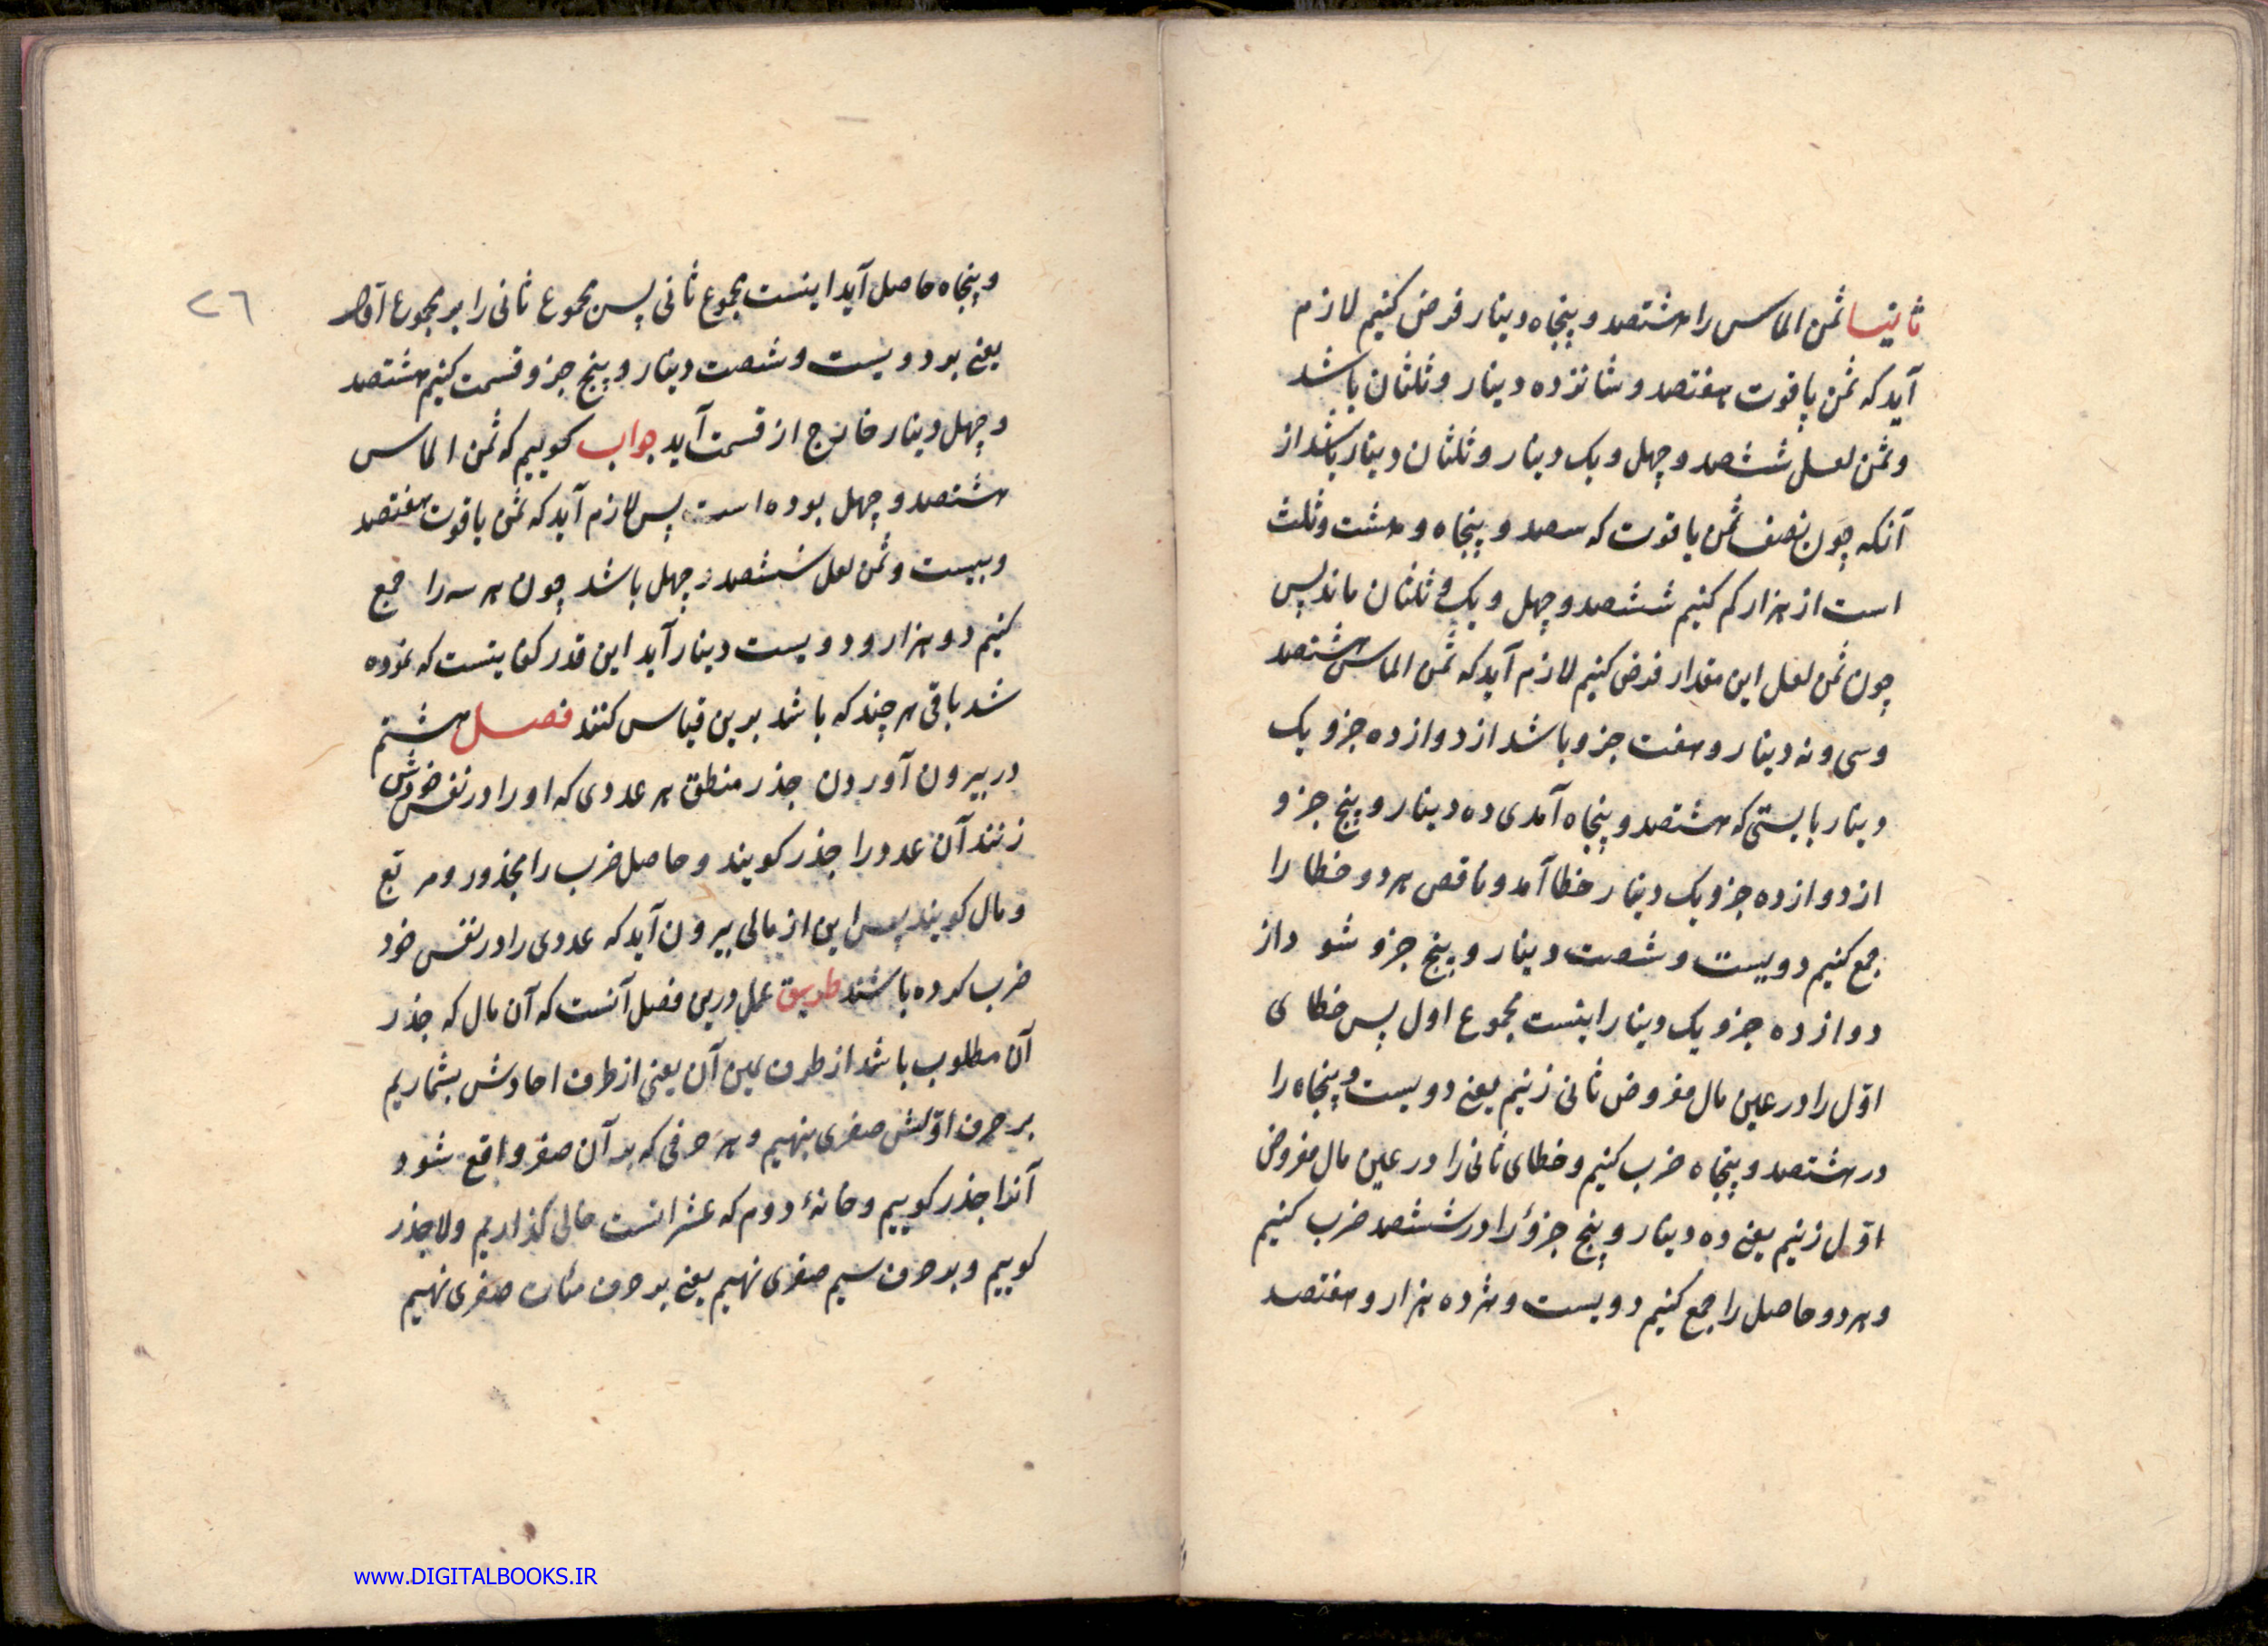 ثانیا ثمن الماس را هشتصد و پنجاه دینار فرض کنیم لازم
آید که ثمن یاقوت هفتصد و شانزده دینار و ثلثان باشد
و ثمن لعل ششصد و چهل و یک دینار و ثلثان دینار باشد از
آنکه چون نصف ثمن یاقوت که سصد و پنجاه و هشت و ثلث
است از هزار کم کنیم ششصد و چهل و یک و ثلثان ماند پس
چون ثمن لعل این مقدار فرض کنیم لازم آید که ثمن الماس هشتصد
و سی و نه دینار و هفت جزو باشد از دوازده جزو یک
دینار بایستی که هشتصد و پنجاه آمدی ده دینار و پنج جزو
از دوازده جزو یک دینار خطا آمد و ناقص هر دو خطا را
جمع کنیم دویست و شصت دینار و پنج جزو شود از
دوازده جزو یک دینار اینست مجموع اول پس خطای
اوّل را در عین مال مفروض ثانی زنیم یعنی دویست و پنجاه را
در هشتصد و پنجاه ضرب کنیم و خطای ثانی را در عین مال مفروض
اوّل زنیم یعنی ده دینار و پنج جزؤ را در ششصد ضرب کنیم
و هر دو حاصل را جمع کنیم دویست و هژده هزار و هفتصد
٢٦
و پنجاه حاصل آید اینست مجموع ثانی پس مجموع ثانی را بر مجموع اوّل
یعنی بر دویست و شصت دینار و پنج جزو قسمت کنیم هشتصد
و چهل دینار خارج از قسمت آید جواب کوییم که ثمن الماس
هشتصد و چهل بوده است پس لازم آید که ثمن یاقوت هفتصد
و بیست و ثمن لعل ششصد و چهل باشد چون هر سه را جمع
کنیم دو هزار و دویست دینار آید این قدر کفایتست که نموده
شد باقی هر چند که باشد برین قیاس کنند فصل هشتم
در بیرون آوردن جذر منطق هر عددی که او را در نفس خودش
زنند آن عدد را جذر کویند و حاصل ضرب را مجذور و مربّع
و مال کویند پس این از مالی بیرون آید که عددی را در نفس خود
ضرب کرده باشند طریق عمل درین فصل آنست که آن مال که جذر
آن مطلوب باشد از طرف یمین آن یعنی از طرف احادش بشماریم
بر حرف اوّلش صفری بنهیم و هر حرفی که بر آن صفر واقع شود
آنرا جذر کوییم و خانهٔ دوم که عشراتست خالی کذاریم و لا جذر
کوییم و بر حرف سیم صفری نهیم یعنی بر حرف مئات صفری نهیم
www.DIGITALBOOKS.IR